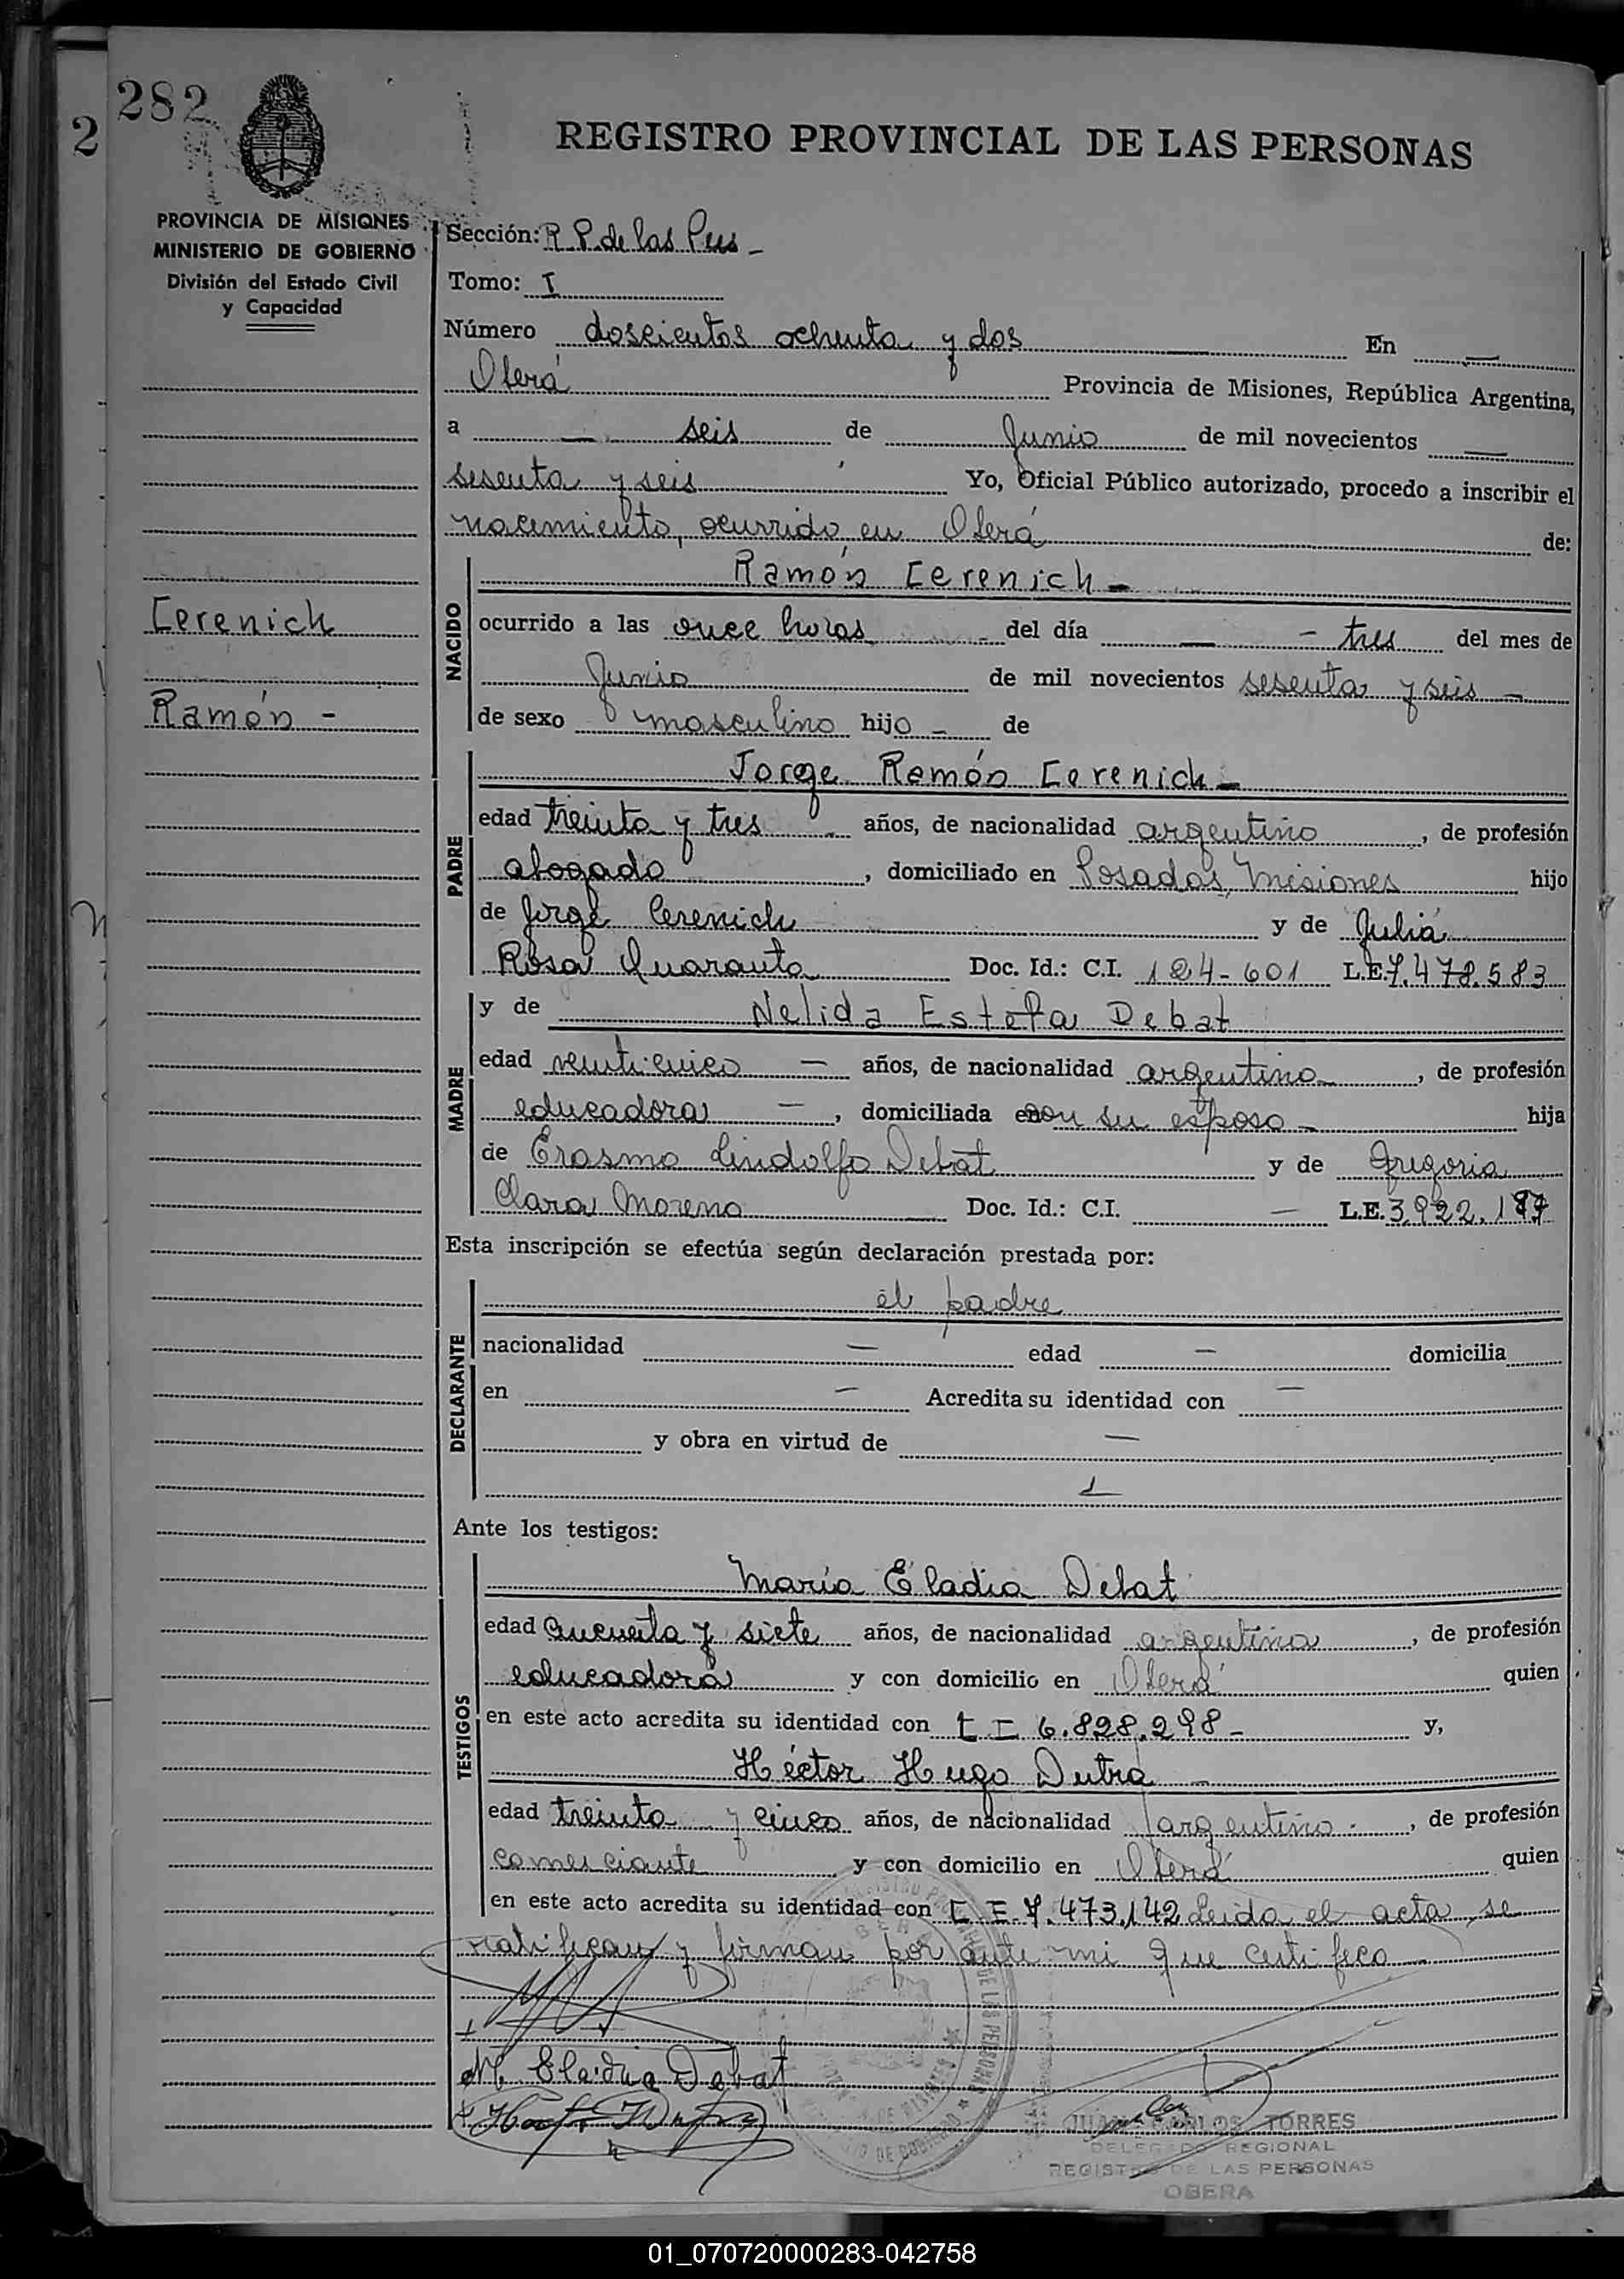 282
2
REGISTRO PROVINCIAL DE LAS PERSONAS
PROVINCIA DE MISIONES
MINISTERIO DE GOBIERNO
División del Estado Civil
y Capacidad
Cerenich
Ramón -
Sección: R. P. de las Pers -
Tomo: I
Número doscientos ochenta y dos — En —
Oberá Provincia de Misiones, República Argentina,
a — seis de Junio de mil novecientos —
sesenta y seis Yo, Oficial Público autorizado, procedo a inscribir el
nacimiento, ocurrido en Oberá de:
NACIDO
Ramón Cerenich -
ocurrido a las once horas - del día — - tres del mes de
Junio de mil novecientos sesenta y seis -
de sexo masculino hijo - de
PADRE
Jorge Ramón Cerenich -
edad treinta y tres - años, de nacionalidad argentino, de profesión
abogado, domiciliado en Posadas, Misiones hijo
de Jorge Cerenich y de Julia
Rosa Quaranta Doc. Id.: C.I. 124-601 L.E. 7.478.583
MADRE
y de Nelida Estela Debat
edad veinticinco — años, de nacionalidad argentina, de profesión
educadora —, domiciliada con su esposo - hija
de Erasmo Lindolfo Debat y de Gregoria
Clara Moreno — Doc. Id.: C.I. — L.E. 3.922.187
Esta inscripción se efectúa según declaración prestada por:
DECLARANTE
el padre
nacionalidad — edad — domicilia
en — Acredita su identidad con —
y obra en virtud de —
Ante los testigos:
TESTIGOS
María Eladia Debat
edad cincuenta y siete años, de nacionalidad argentina, de profesión
educadora y con domicilio en Oberá quien
en este acto acredita su identidad con 6.828.298 - y,
Héctor Hugo Dutra -
edad treinta y cinco años, de nacionalidad argentino, de profesión
comerciante y con domicilio en Oberá quien
en este acto acredita su identidad con 7.473.142 Leida el acta, se
ratifican y firman por ante mi que certifico
M. Eladia Debat
JUAN CARLOS TORRES
DELEGADO REGIONAL
REGISTRO DE LAS PERSONAS
OBERA
01_070720000283-042758